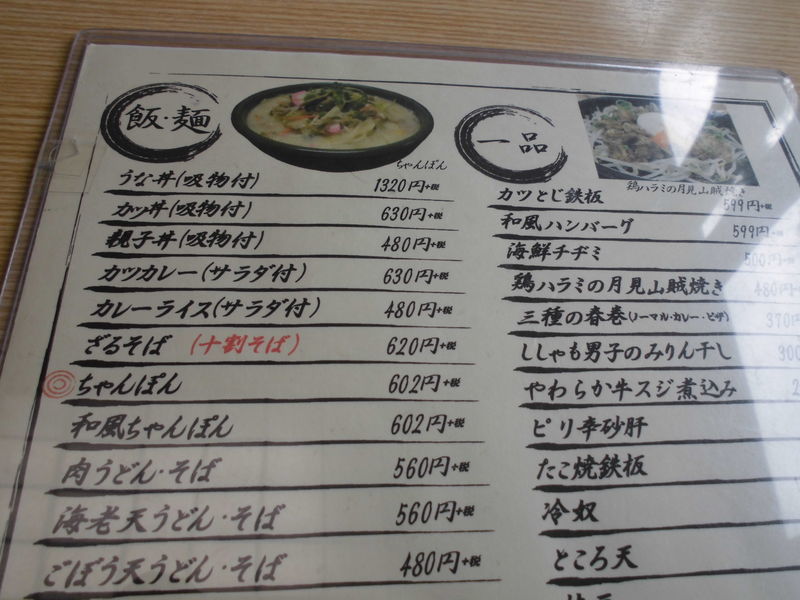 飯・麺
ちゃんぽん
うな丼(吸物付) 1320円+税
カツ丼(吸物付) 630円+税
親子丼(吸物付) 480円+税
カツカレー(サラダ付) 630円+税
カレーライス(サラダ付) 480円+税
ざるそば (十割そば) 620円+税
ちゃんぽん 602円+税
和風ちゃんぽん 602円+税
肉うどん・そば 560円+税
海老天うどん・そば 560円+税
ごぼう天うどん・そば 480円+税
一品
鶏ハラミの月見山賊焼き
カツとじ鉄板 599円+税
和風ハンバーグ 599円
海鮮チヂミ 500円
鶏ハラミの月見山賊焼き 480円
三種の春巻(ノーマル・カレー・ピザ) 370円
ししゃも男子のみりん干し 300
やわらか牛スジ煮込み 2
ピリ辛砂肝
たこ焼鉄板
冷奴
ところ天